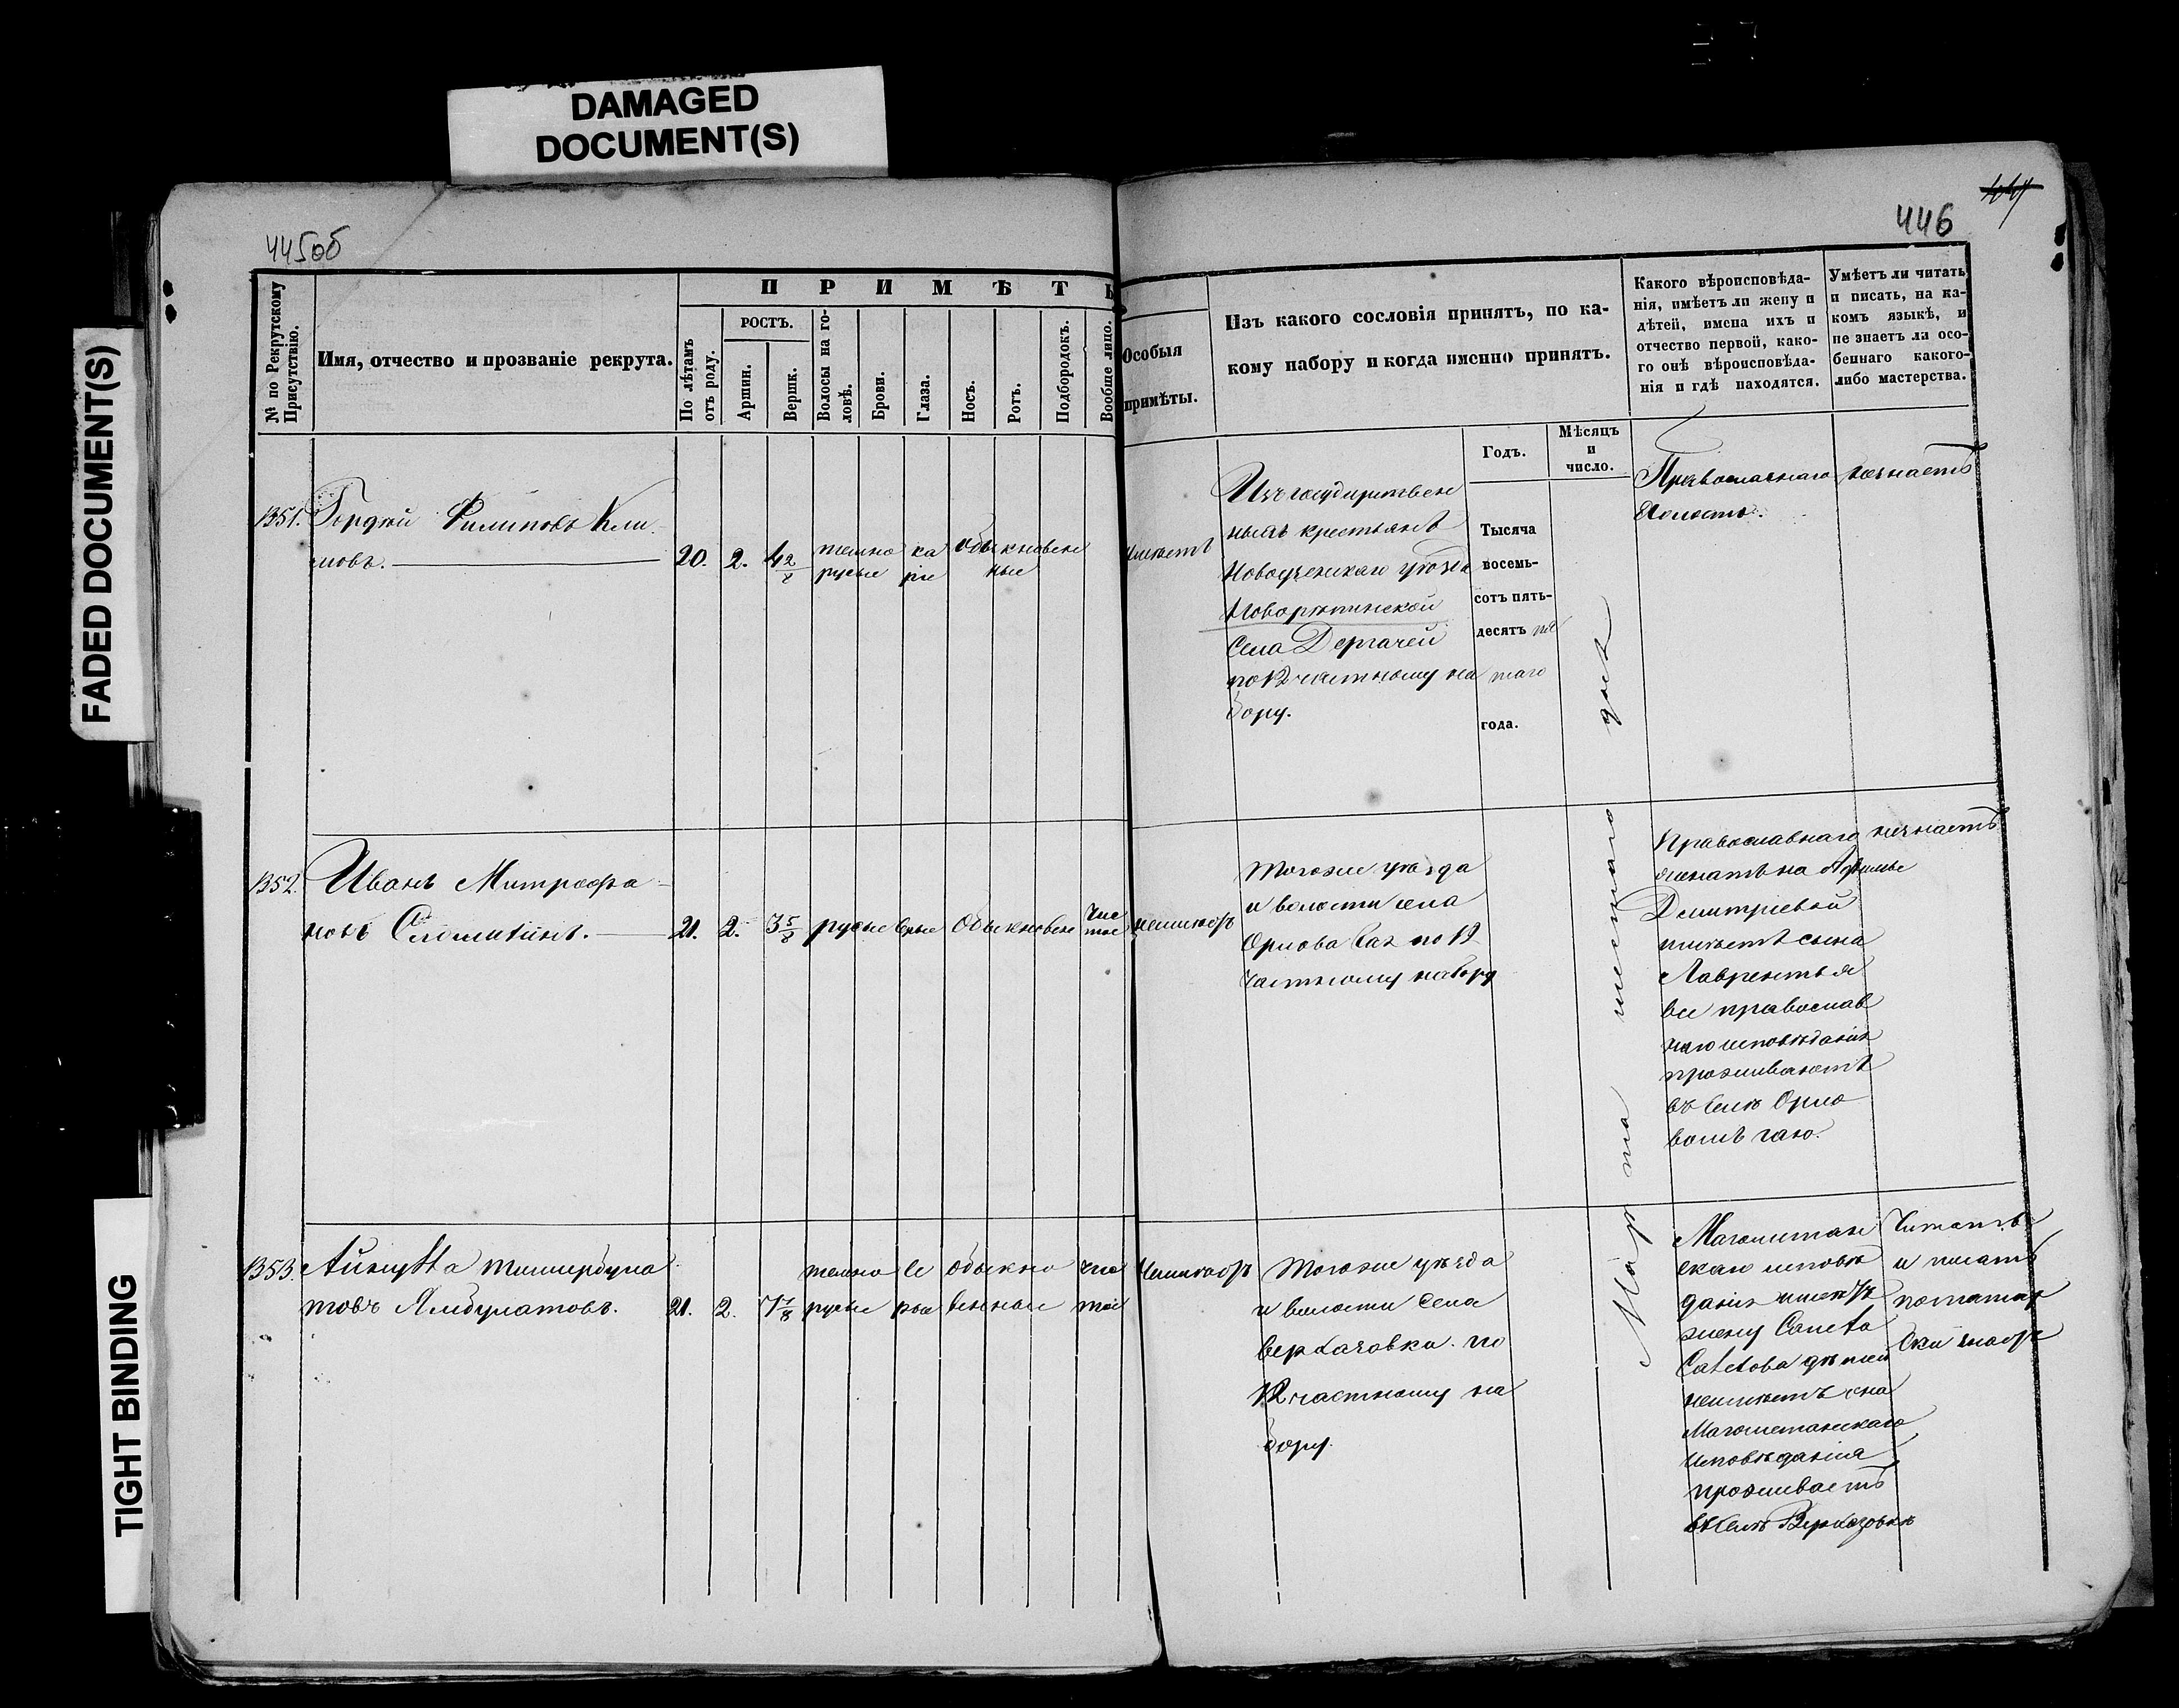 DAMAGED
DOCUMENT(S)
FADED DOCUMENT(S)
TIGHT BINDING
445об
446
П Р И М Ѣ Т Ы
№ по Рекрутскому
Присутствію.
Имя, отчество и прозваніе рекрута.
По лѣтамъ
отъ роду.
РОСТЪ.
Аршин.
Вершк.
Волосы на го-
ловѣ.
Брови.
Глаза.
Носъ.
Ротъ.
Подбородокъ.
Вообще лицо.
Особыя
примѣты.
Изъ какого сословія принятъ, по ка-
кому набору и когда именно принятъ.
Годъ.
Мѣсяцъ
и
число.
Какого вѣроисповѣда-
нія, имѣетъ ли жену и
дѣтей, имена ихъ и
отчество первой, како-
го онѣ вѣроисповѣда-
нія и гдѣ находятся.
Умѣетъ ли читать
и писать, на ка-
комъ языкѣ, и
не знаетъ ли осо-
беннаго какого-
либо мастерства.
1351. Гордѣй Филиповъ Кли-
мовъ.
20. 2. 4 2/8
темно
русые
ка
ріе
обыкновен
ные
Изъ государствен
ныхъ крестьянъ
Новоузенскаго уѣзда
Новорѣпинской
Села Дергачей
по 12 частному на
бору.
Тысяча
восемь-
сотъ пять-
десятъ пя
таго
года.
Православнаго
Холостъ.
незнаетъ
1352. Иванъ Митрофа-
новъ
21. 2. 3 5/8 русые серые обыкновен
чис
тое
неимѣетъ
Тогоже уѣзда
и волости села
Орлова Гая по 12
частному набору
Православнаго
женатъ на
Дмитріевой
имѣетъ сына
Лаврентья
все православ
наго исповѣданія
проживаютъ
въ селѣ Орло
вомъ гаю.
незнаетъ
Марта шестаго дня
1353.
товъ Ямбулатовъ.
21. 2. 7 7/8
темно
русые
се
рые
обыкно
венное
чис
тое
Неимѣетъ
Тогоже уѣзда
и волости Села
Верхазовки. по
12 частному на
бору.
Магометан
скаго исповѣ
данія имѣетъ
жену
дѣтей
неимѣетъ она
Магометанскаго
исповѣданія
проживаетъ
въ селѣ Верхазовкѣ
Читать
и писать
потатар
ски знаетъ